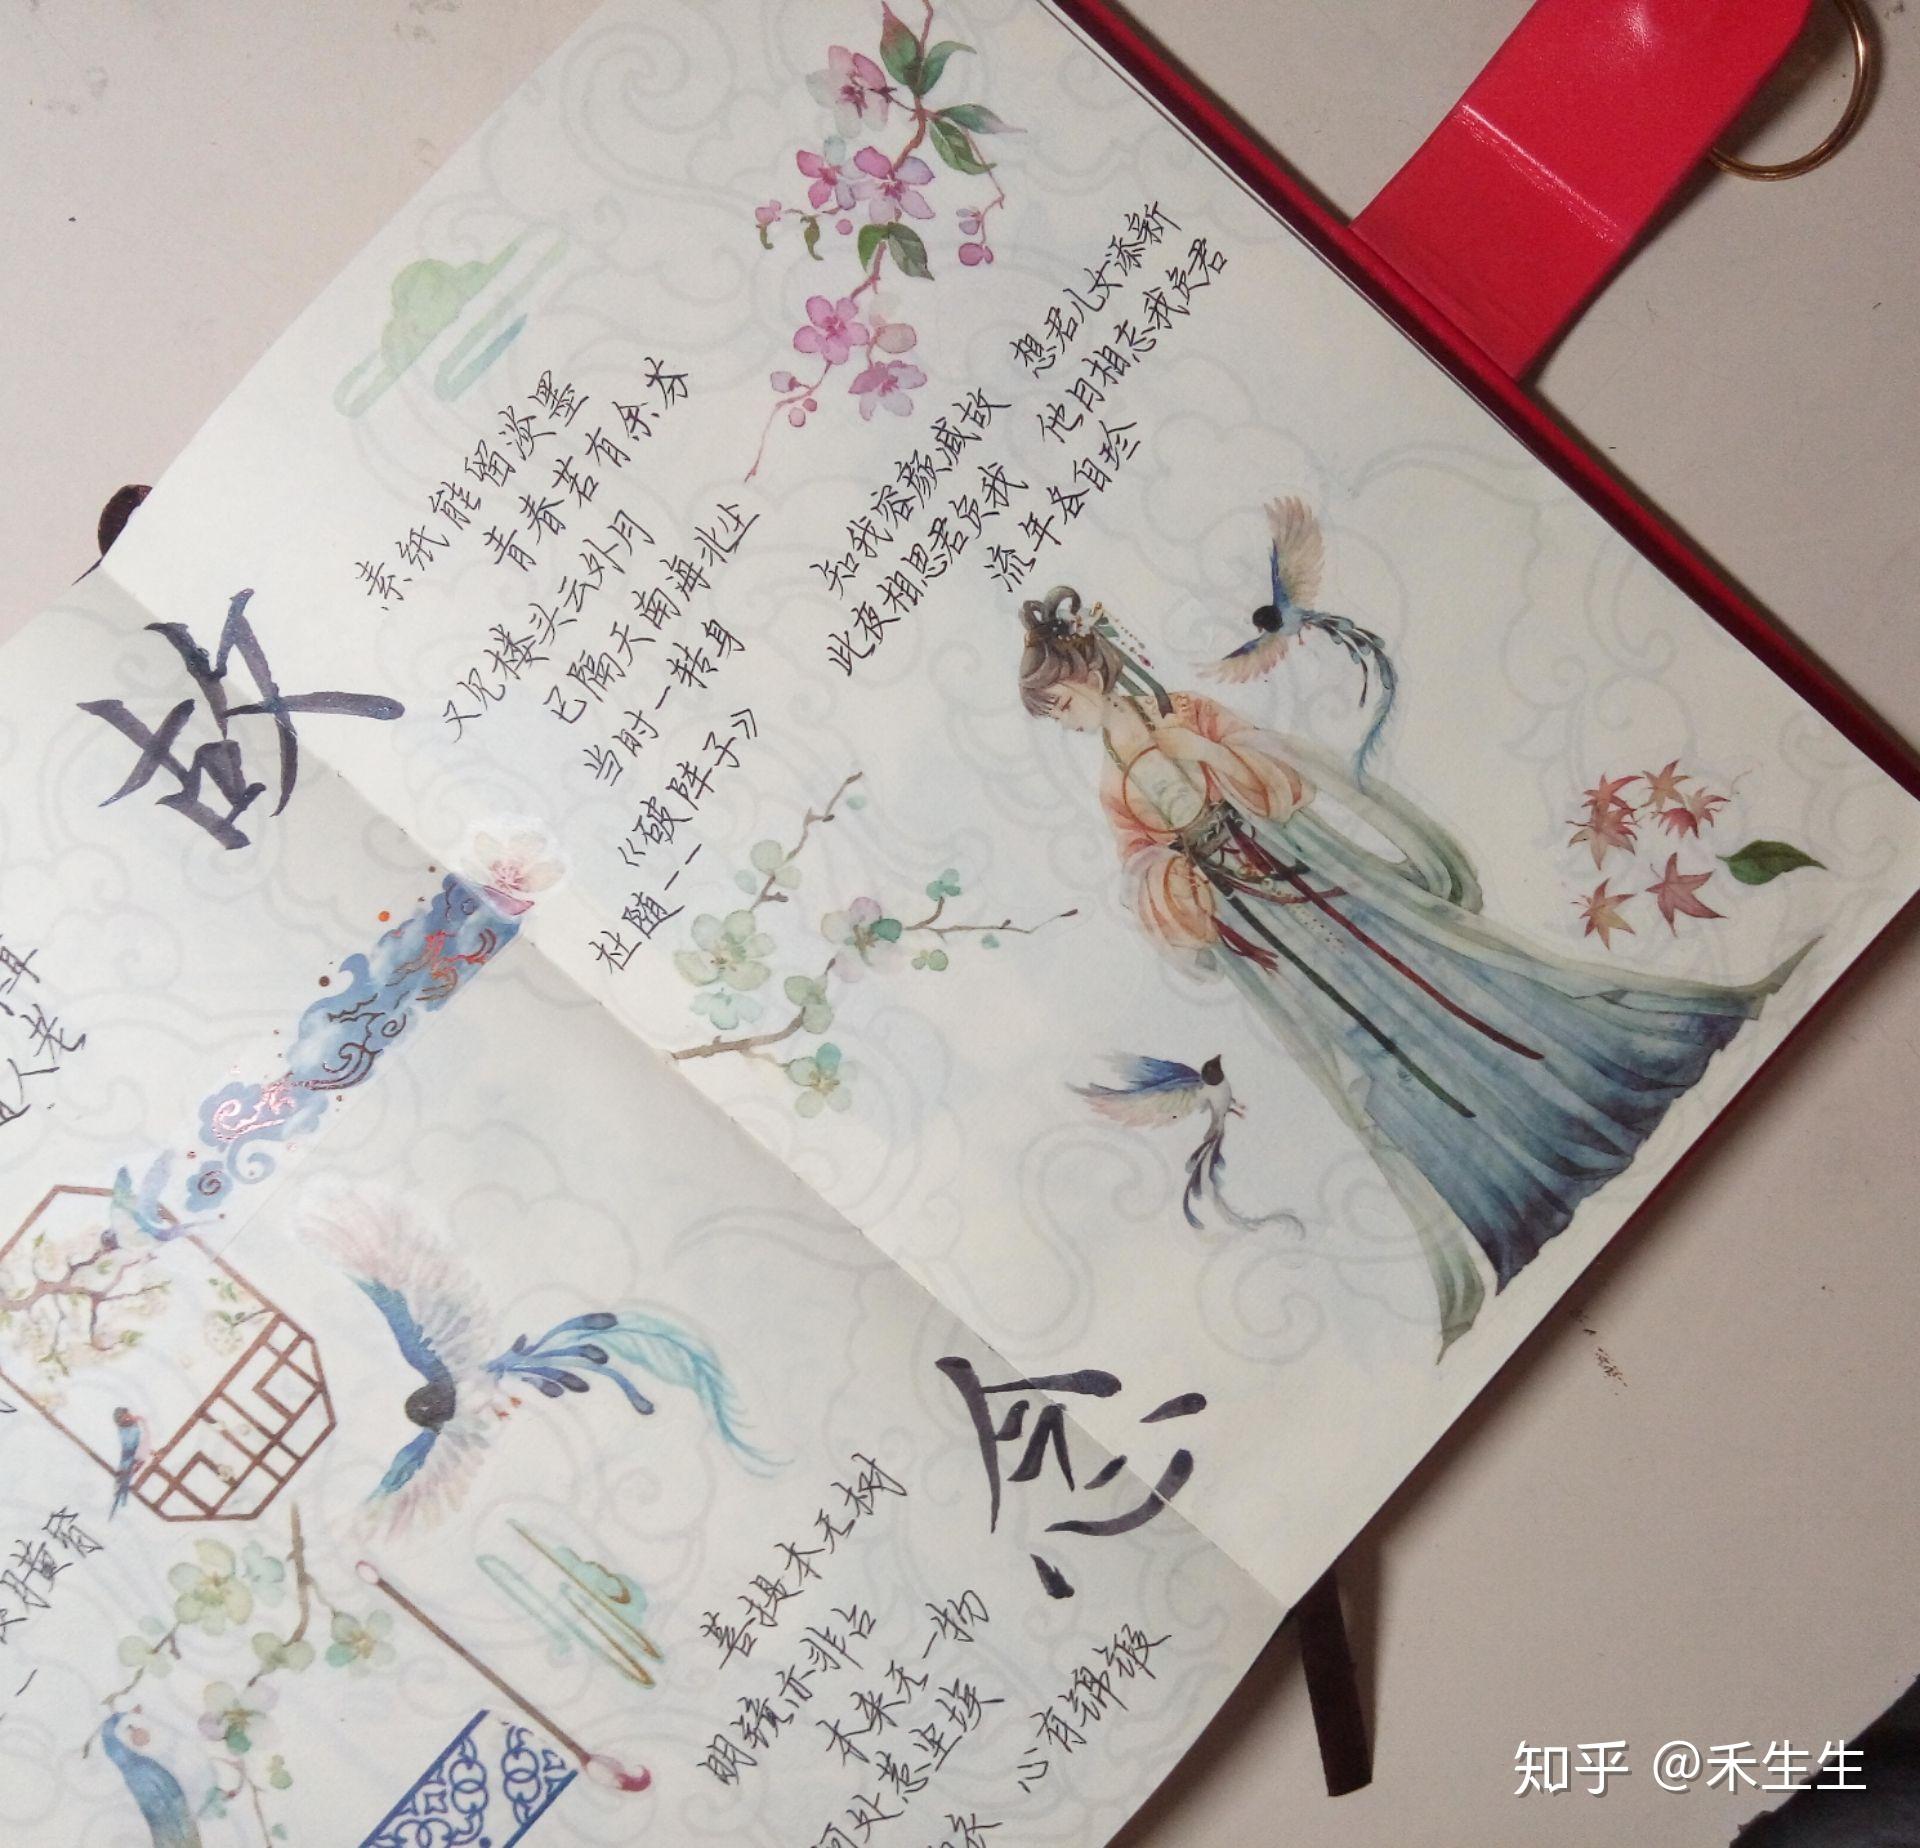 故
素纸能留淡墨
青春若有余芬
又见楼头云外月
已隔天南海北尘
当时一转身
《破阵子》
杜随——
知我容颜减故 想君儿女添新
此夜相思君负我 他日相忘我负君
流年各自珍
人老
黄昏
菩提本无树
明镜亦非台
本来无一物
何处惹尘埃
心有锦缎
知乎 @禾生生